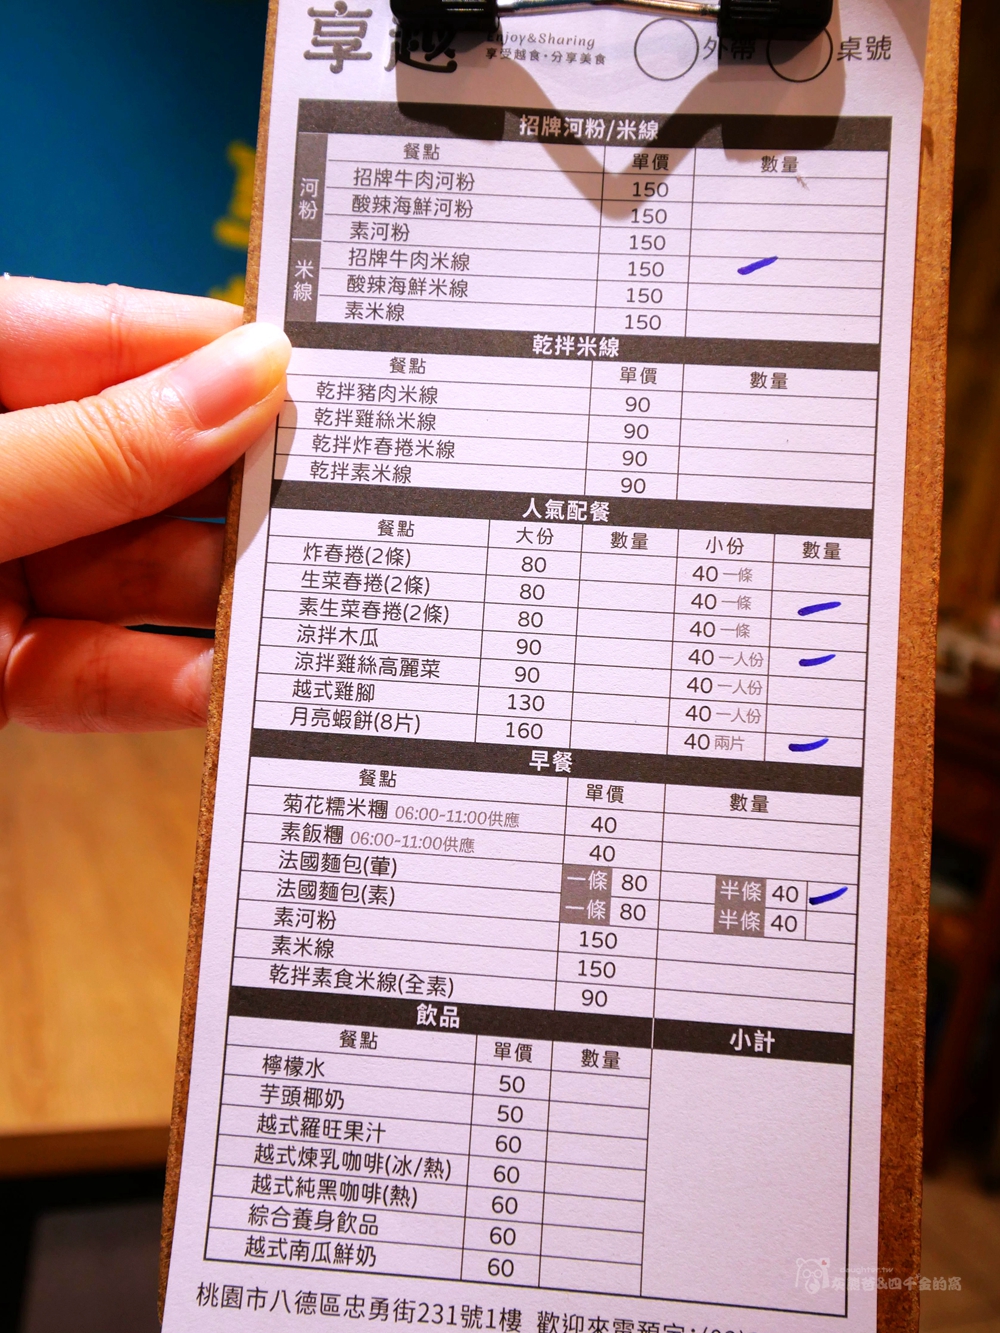 享越 Enjoy&Sharing
享受越食·分享美食
外帶 桌號
招牌河粉/米線
餐點 單價 數量
河粉
招牌牛肉河粉 150
酸辣海鮮河粉 150
素河粉 150
米線
招牌牛肉米線 150
酸辣海鮮米線 150
素米線 150
乾拌米線
餐點 單價 數量
乾拌豬肉米線 90
乾拌雞絲米線 90
乾拌炸春捲米線 90
乾拌素米線 90
人氣配餐
餐點 大份 數量 小份 數量
炸春捲(2條) 80 40 一條
生菜春捲(2條) 80 40 一條
素生菜春捲(2條) 80 40 一條
涼拌木瓜 90 40 一人份
涼拌雞絲高麗菜 90 40 一人份
越式雞腳 130 40 一人份
月亮蝦餅(8片) 160 40 兩片
早餐
餐點 單價 數量
菊花糯米糰 06:00-11:00供應 40
素飯糰 06:00-11:00供應 40
法國麵包(葷) 一條 80 半條 40
法國麵包(素) 一條 80 半條 40
素河粉 150
素米線 150
乾拌素食米線(全素) 90
飲品 小計
餐點 單價 數量
檸檬水 50
芋頭椰奶 50
越式羅旺果汁 60
越式煉乳咖啡(冰/熱) 60
越式純黑咖啡(熱) 60
綜合養身飲品 60
越式南瓜鮮奶 60
桃園市八德區忠勇街231號1樓 歡迎來電預定:
daughter.tw
&四千金的窩